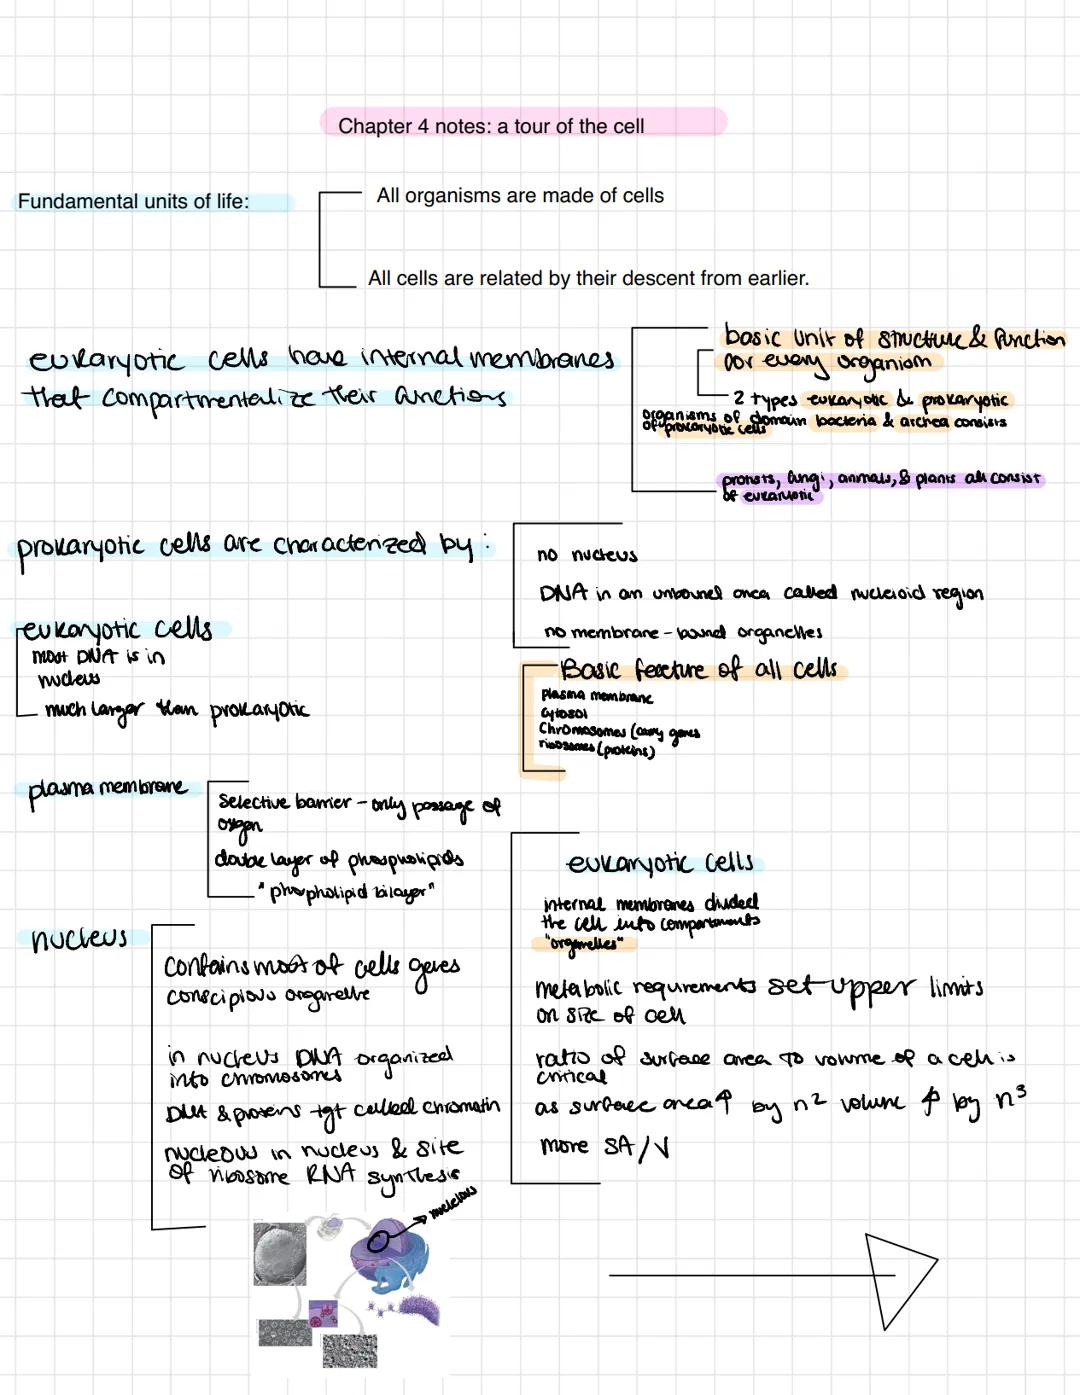 Chapter 4 notes: a tour of the cell
Fundamental units of life:
All organisms are made of cells
All cells are related by their descent from earlier.
eukaryotic cells have internal membranes
that compartmentalize their functions
basic unit of structure & function
for every organism
2 types eukaryotic & prokaryotic
organisms of domain bacteria & archea consists
of prokaryotic cells
protists, fungi, animals, & plants all consist
of eukaryotic
prokaryotic cells are characterized by:
no nucleus
DNA in an unbound area called nucleoid region
no membrane-bound organelles
eukaryotic cells
most DNA is in
nucleus
much larger than prokaryotic
Basic feature of all cells
plasma membrane
cytosol
Chromosomes (carry genes
ribosomes (proteins)
plasma membrane
Selective barrier - only passage of
oxygen
double layer of phospholipids
"phospholipid bilayer"
eukaryotic cells
internal membranes divided
the cell into compartments
"organelles"
metabolic requirements set upper limits
on size of cell
ratio of surface area to volume of a cell is
critical
as surface area ↑ by n² volume ↑ by n³
more SA/V
nucleus
contains most of cells genes
conscipious organelle
in nucleus DNA organized
into chromosomes
DNA & proteins tgt called chromatin
nucleous in nucleus & site
of ribosome RNA synthesis
→ nucleolus